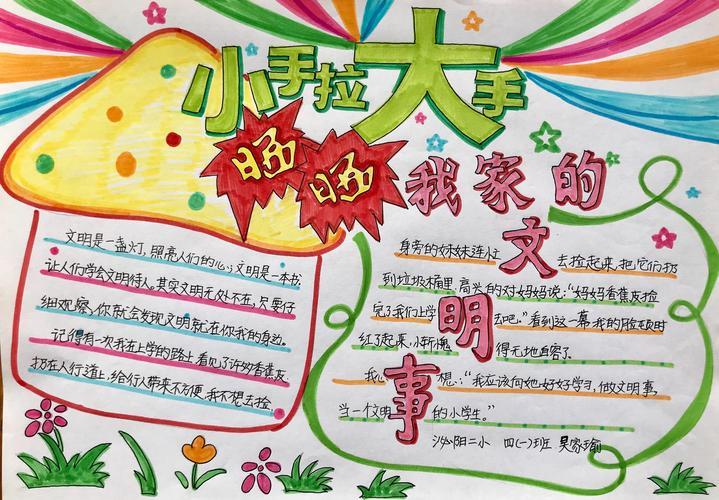 小手拉大手
晒晒
我家的
文明事
文明是一盏灯,照亮人们的心;文明是一本书,
让人们学会文明待人。其实文明无处不在,只要仔
细观察,你就会发现文明就在你我的身边。
记得有一次我在上学的路上看见了许多香蕉皮
扔在人行道上,给行人带来不方便,我不想去捡
身旁的妹妹连忙去捡起来,把它们扔
到垃圾桶里,高兴的对妈妈说:“妈妈香蕉皮捡
完了我们上学去吧。”看到这一幕,我的脸顿时
红了起来,小新
得无地自容了。
我
想:“我应该向她好好学习,做文明事,
当一个文明的小学生。”
泌阳二小 四(一)班 吴家瑜